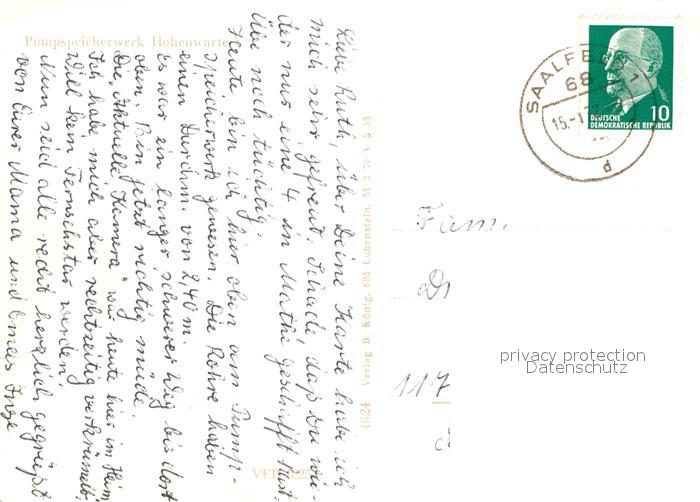 Pumpspeicherwerk Hohenwarte
Liebe Ruth, über Deine Karte habe ich
mich sehr gefreut. Schade daß Du wie-
der nur eine 4 in Mathe geschafft hast.
Übe noch tüchtig.
Heute bin ich hier oben am Pump-
speicherwerk gewesen. Die Rohre haben
einen Durchm. von 2,40 m.
Es war ein langer schwerer Weg bis dort
oben. Bin jetzt richtig müde.
Die „Aktuelle Kamera" war heute hier im Heim,
Ich habe mich aber rechtzeitig verkrümelt,
will kein Fernsehstar werden.
Nun seid alle recht herzlich gegrüßt
von Eurer Mama und Omas Inge
4824 Verlag B. König, 685 Lobenstein. M 2 70 A 5 53
SAALFELD 1
68
15.-1.7
d
DEUTSCHE
DEMOKRATISCHE REPUBLIK
10
Fam.
Dr
117
privacy protection
Datenschutz